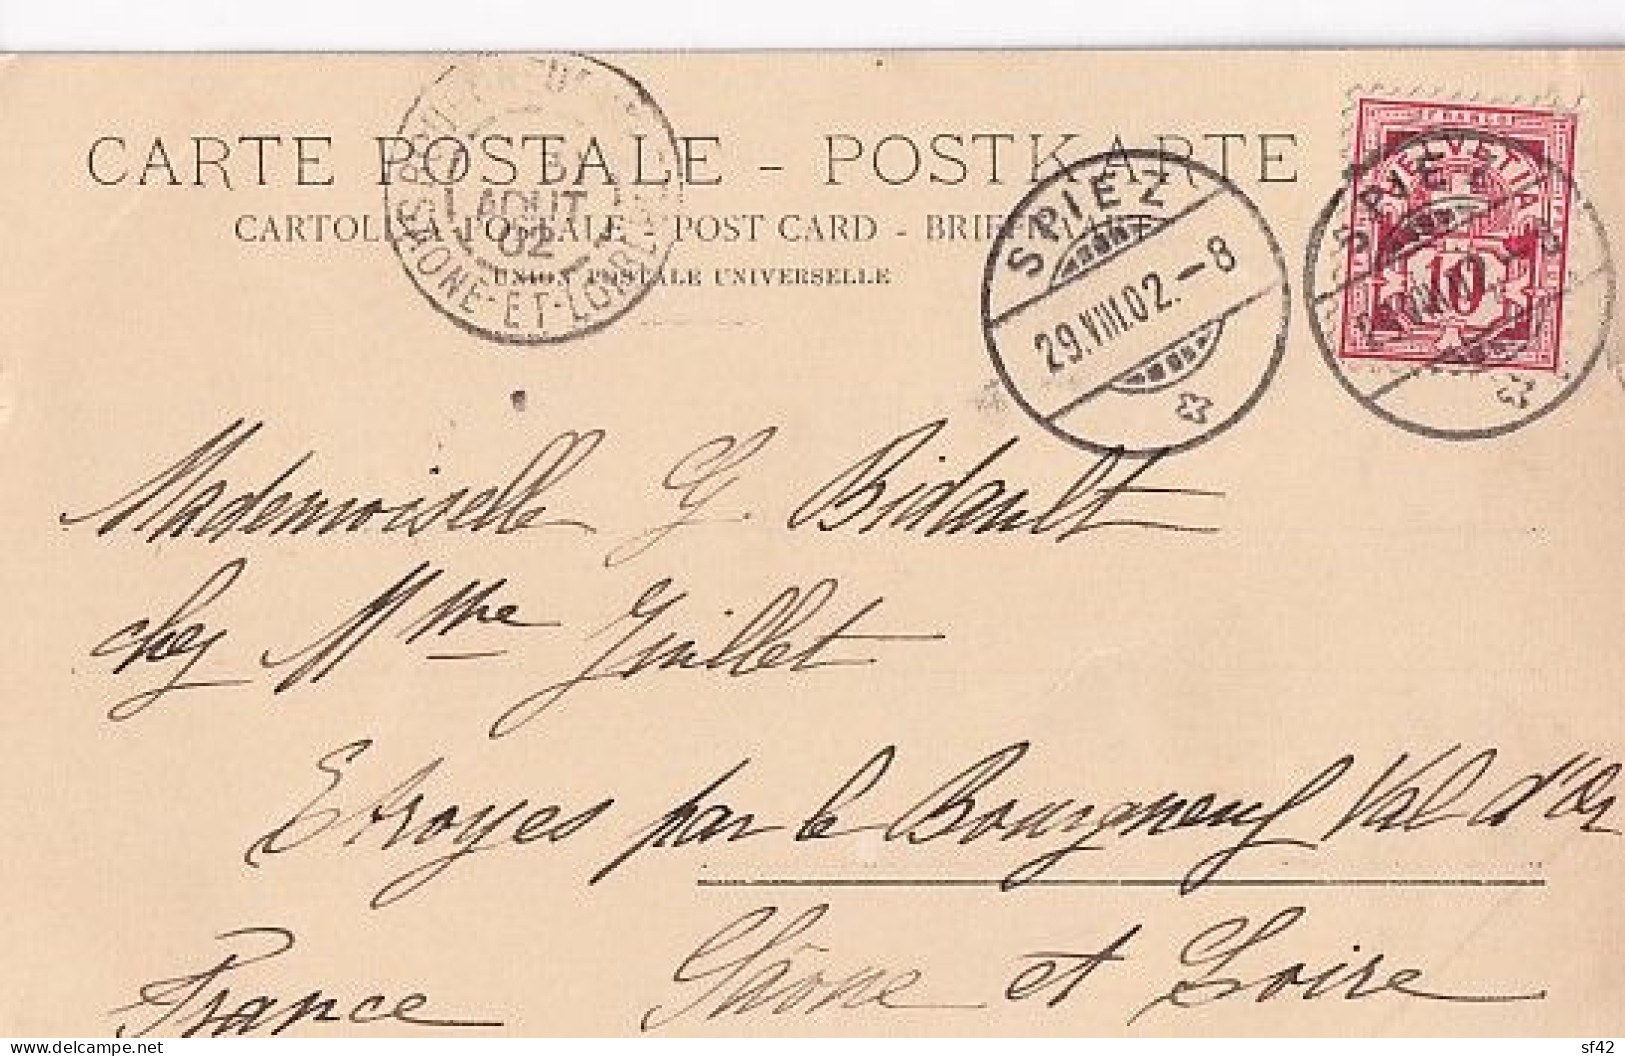 CARTE POSTALE - POSTKARTE
CARTOLINA POSTALE - POST CARD - BRIEFKAART
UNION POSTALE UNIVERSELLE
AOUT
02
SAONE-ET-LOIRE
SPIEZ
29.VIII.02.-8
FRANCO
HELVETIA
10
SPIEZ
Mademoiselle G. Bidault
chez Mme Guillet
Etroyes par le Bourgneuf Val d'Or
Saône et Loire
France
delcampe.net
sf42